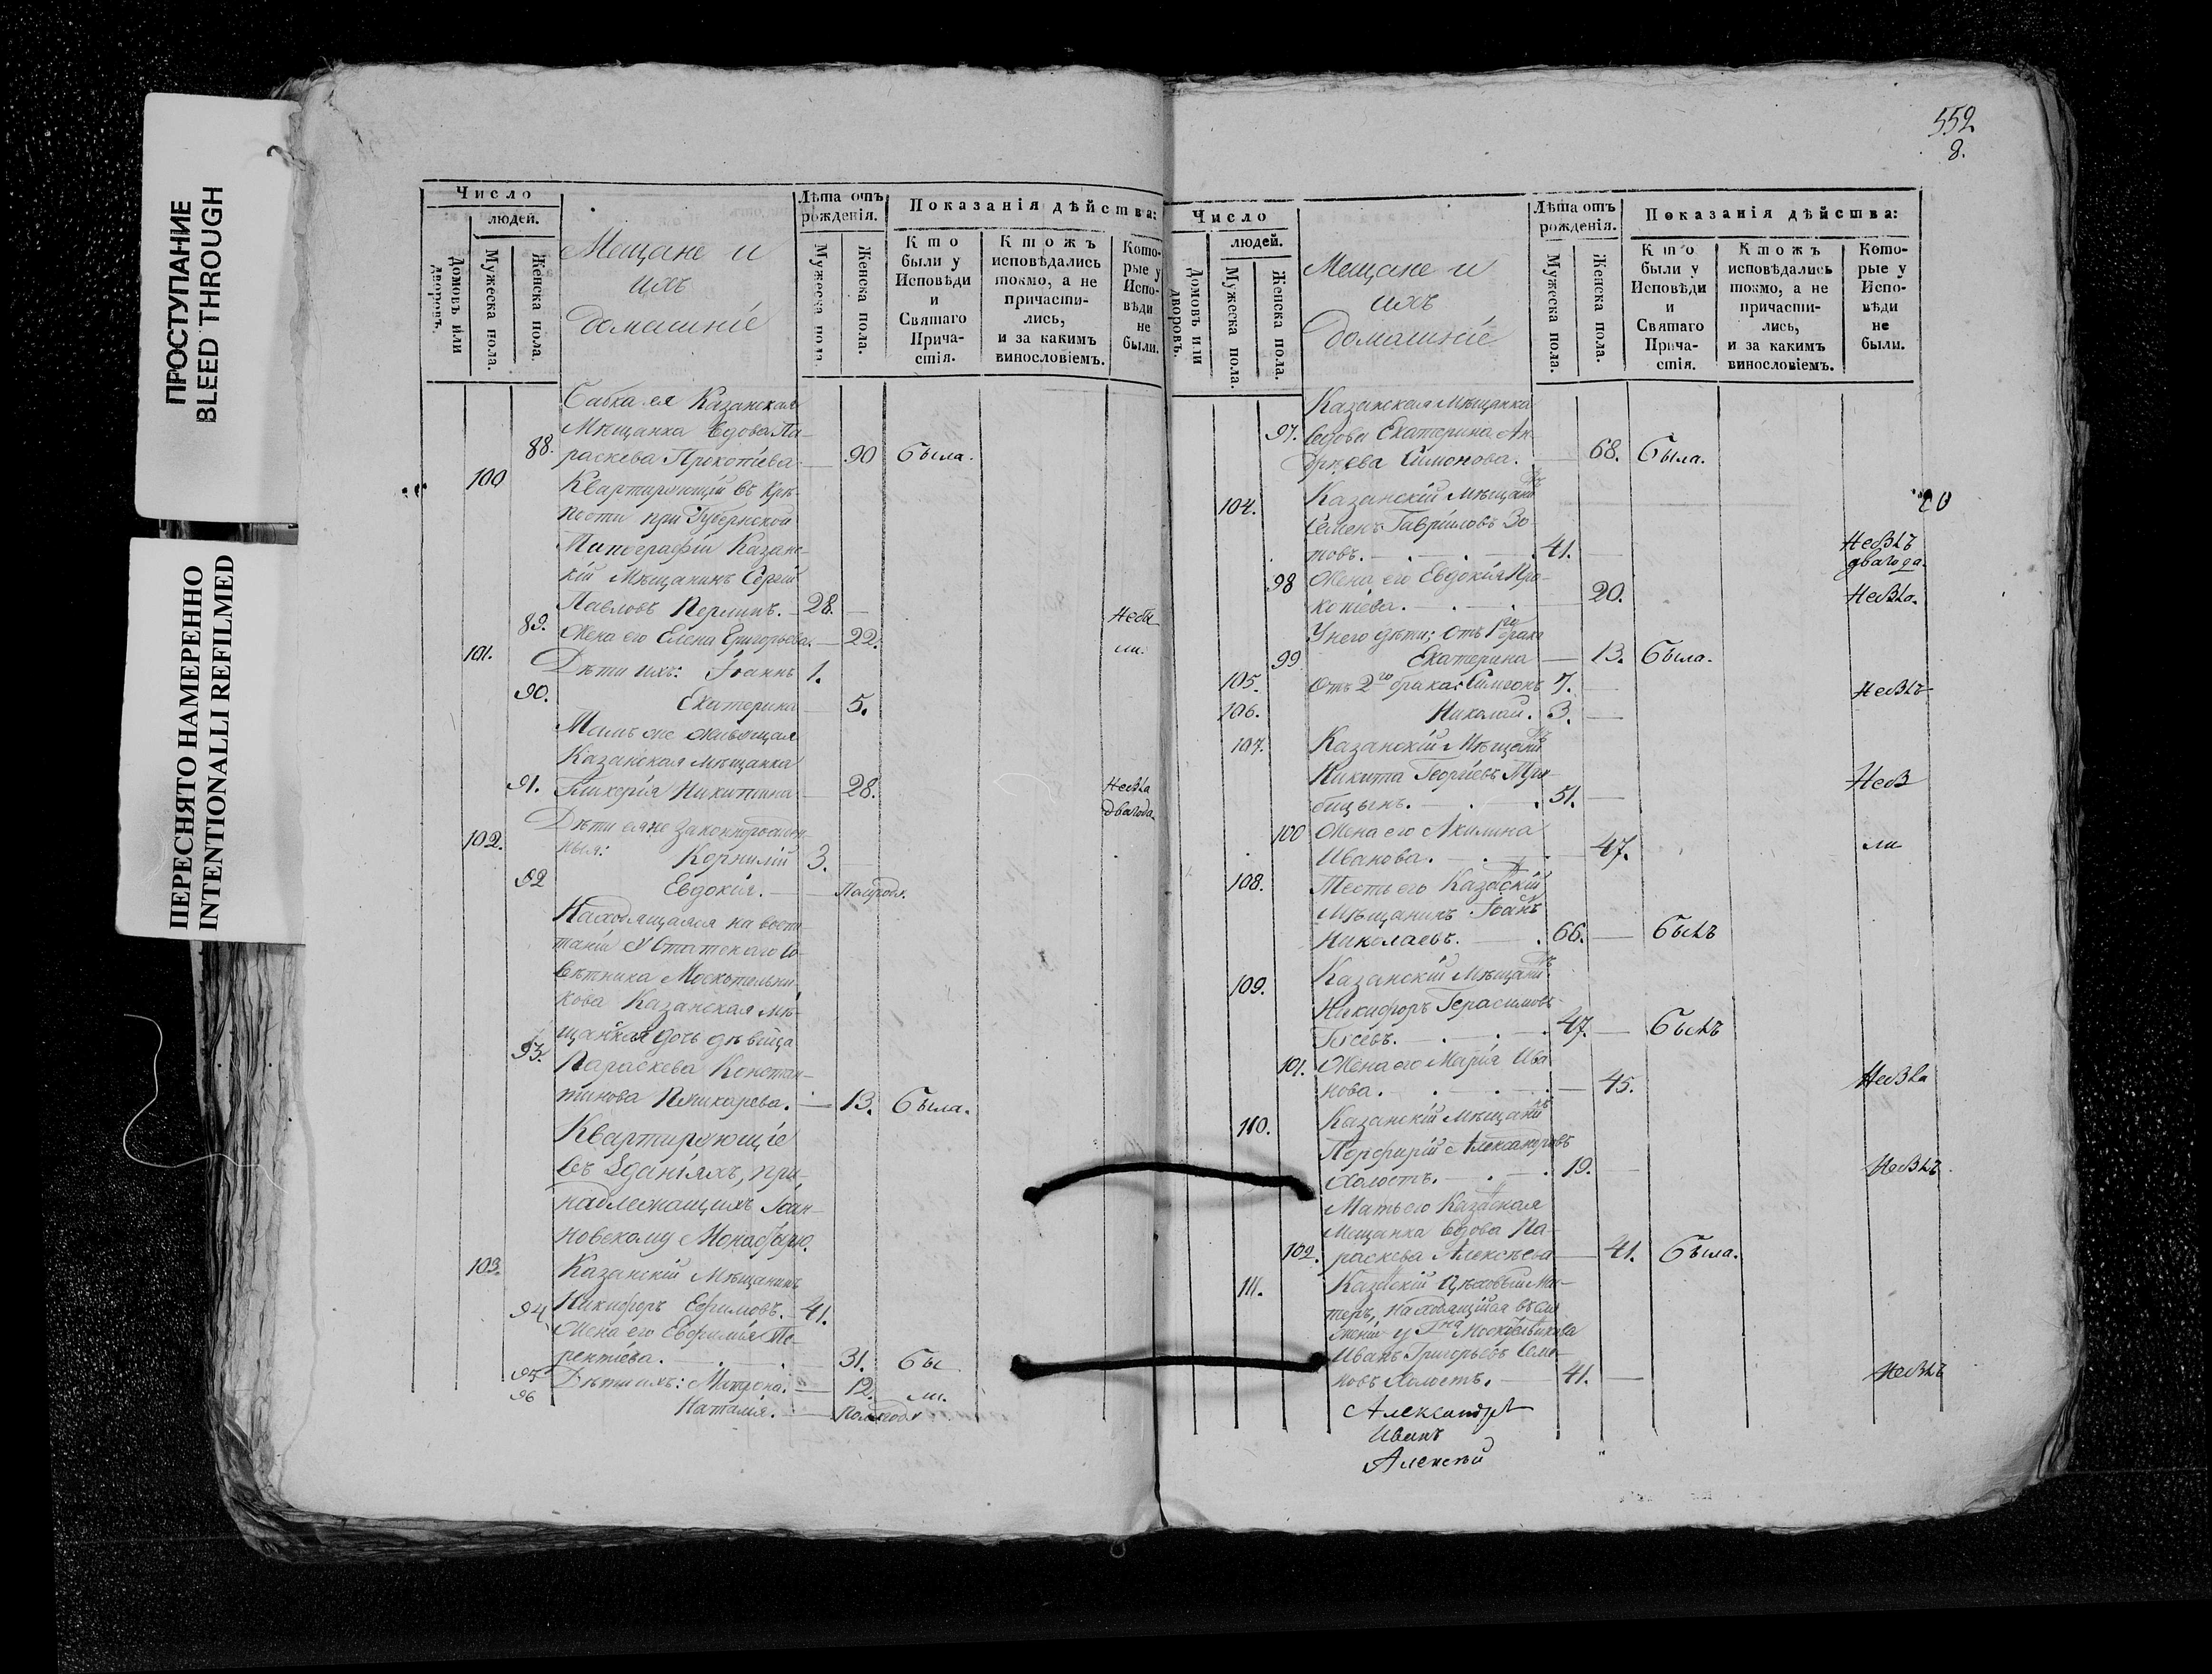 ПРОСТУПАНИЕ
BLEED THROUGH
ПЕРЕСНЯТО НАМЕРЕННО
INTENTIONALLI REFILMED
Число
людей.
Домовъ или дворовъ.
Мужеска пола.
Женска пола.
Мещане и
ихъ
домашніе
Лѣта отъ рожденія.
Мужеска пола
Женска пола.
Показанія дѣйства:
Кто были у Исповѣди и Святаго Прича-стія.
Ктожъ исповѣдались токмо, а не причасти-лись, и за какимъ винословіемъ.
Кото-рые у Испо-вѣди не были.
Бабка ея Казанская
Мѣщанка вдова Па-
88. раскева Прокопіева. — 90 была.
100 Квартирующій въ Крѣ-
пости при Губернской
Типографіи Казанс-
кій Мѣщанинъ Сергій
Павловъ Перлинъ. — 28. — Небы
89. Жена его Елена Григорьева. — 22. ли.
101. Дѣти ихъ: Іоаннъ 1.
90. Екатерина — 5.
Тамъ же живущая
Казанская мѣщанка
91. Гликерія Никитина — 28. Небыла
два года
Дѣти ея не законнорожден-
102. ныя: Корнилій 3. —
92 Евдокія. — Полгода.
Находящаяся на воспи-
таніи у Статскаго Со-
вѣтника Москотельни-
кова Казанская мѣ-
щанская дочь дѣвица
93. Параскева Констан-
тинова Пушкарева. — 13. была.
Квартирующіе
въ Зданіяхъ, при-
надлежащихъ Іоан-
новскому Монастырю.
103. Казанскій Мѣщанинъ
Никифоръ Ефимовъ. — 41.
94 Жена его Евфимія Те-
рентіева. — 31. бы
95 Дѣти ихъ: Матрона. — 12. ли.
96 Наталія. — Полгода
552
8.
Число
людей.
Домовъ или дворовъ.
Мужеска пола.
Женска пола.
Мещане и
ихъ
домашніе
Лѣта отъ рожденія.
Мужеска пола.
Женска пола.
Показанія дѣйства:
Кто были у Исповѣди и Святаго Прича-стія.
Ктожъ исповѣдались токмо, а не причасти-лись, и за какимъ винословіемъ.
Кото-рые у Испо-вѣди не были.
Казанская Мѣщанка
97. вдова Екатерина Ан-
дреева Симонова. — 68. была.
104. Казанскій Мѣщанинъ
Семенъ Гавриловъ Зо-
товъ. — 41. — Небылъ
два года.
98 Жена его Евдокія Про-
копіева. — 20. Небыла.
У него дѣти; отъ 1го брака
99 Екатерина — 13. была.
105. Отъ 2го брака: Симеонъ 7. — Небылъ
106. Николай. 3. —
107. Казанскій Мѣщанинъ
Никита Георгіевъ Тря-
пицынъ. — 51. — Небы
100 Жена его Акилина
Иванова. — 47. ли
108. Тесть его Казанскій
Мѣщанинъ Іоаннъ
Николаевъ. — 66. — былъ
109. Казанскій Мѣщанинъ
Никифоръ Герасимовъ
Гусевъ. — 47. — былъ
101. Жена его Марія Ива-
нова. — 45. Небыла
110. Казанскій Мѣщанинъ
Порфирій Александровъ
Холостъ. — 19. — Небылъ
Мать его Казанская
Мещанка вдова Па-
102. раскева Алексѣева — 41. была.
111. Казанскій Цѣховый Мас-
теръ, находящійся въ слу-
женіи у Гна Москотельникова
Иванъ Григорьевъ Семе-
новъ Холостъ. — 41. — Небылъ
Александръ
Иванъ
Алексѣй